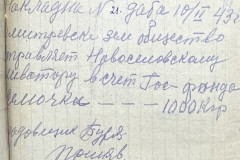 Накладна № 21. дата 10/II 43 г
митревске зем общество
травляет Новоселовскому
еватору в счет Гос-фонда
емочки — — — 1000 кгр
адовщик Буря